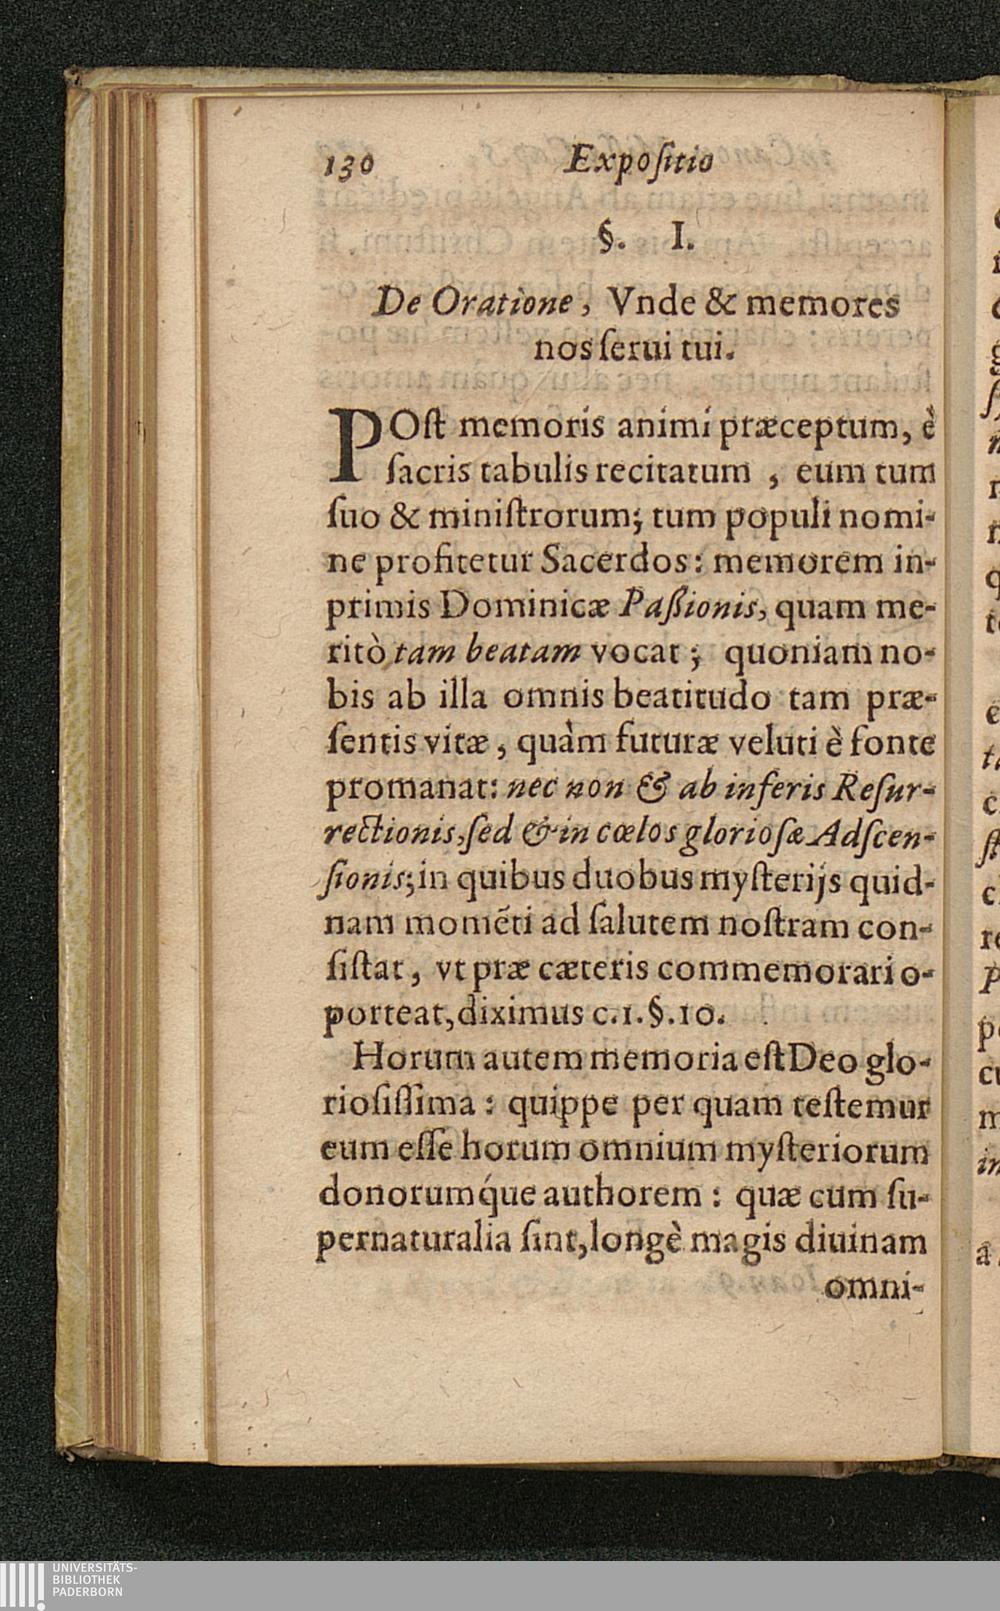 130 Expoſitio
§. I.
De Oratione, Vnde & memores
nos ſerui tui.
POſt memoris animi præceptum, è
ſacris tabulis recitatum , eum tum
ſuo & miniſtrorum; tum populi nomi-
ne profitetur Sacerdos: memorem in-
primis Dominicæ Paſſionis, quam me-
ritò tam beatam vocat; quoniam no-
bis ab illa omnis beatitudo tam præ-
ſentis vitæ, quàm futuræ veluti è fonte
promanat: nec non & ab inferis Reſur-
rectionis, ſed & in cœlos glorioſæ Adſcen-
ſionis; in quibus duobus myſterijs quid-
nam momẽti ad ſalutem noſtram con-
ſiſtat, vt præ cæteris commemorari o-
porteat, diximus c.1.§.10.
Horum autem memoria eſt Deo glo-
rioſiſſima: quippe per quam teſtemur
eum eſſe horum omnium myſteriorum
donorumq́ue authorem: quæ cum ſu-
pernaturalia ſint, longè magis diuinam
omni-
UNIVERSITÄTS-
BIBLIOTHEK
PADERBORN